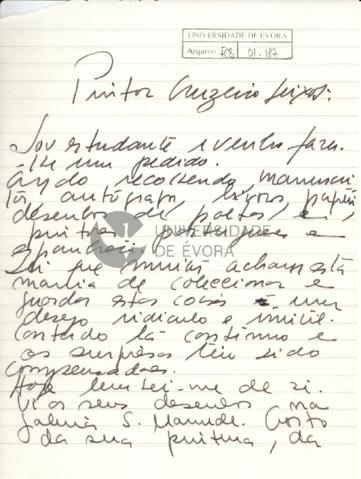 UNIVERSIDADE DE ÉVORA
Arquivo FCS 01.187
Pintor Cruzeiro Seixas:
Sou estudante e venho fazer-
-lhe um pedido.
Ando recolhendo manuscri-
tos, autógrafos, papéis
desenhos de poetas e
pintores portugueses e
espanhóis
UNIVERSIDADE
DE ÉVORA
Sei que muitos acham esta
mania de coleccionar e
guardar estas coisas um
desejo ridículo e inútil.
Contudo lá continuo e
as surpresas têm sido
compensadoras.
Hoje lembrei-me de si.
Vi os seus desenhos na
galeria S. Mamede. Gosto
da sua pintura, da